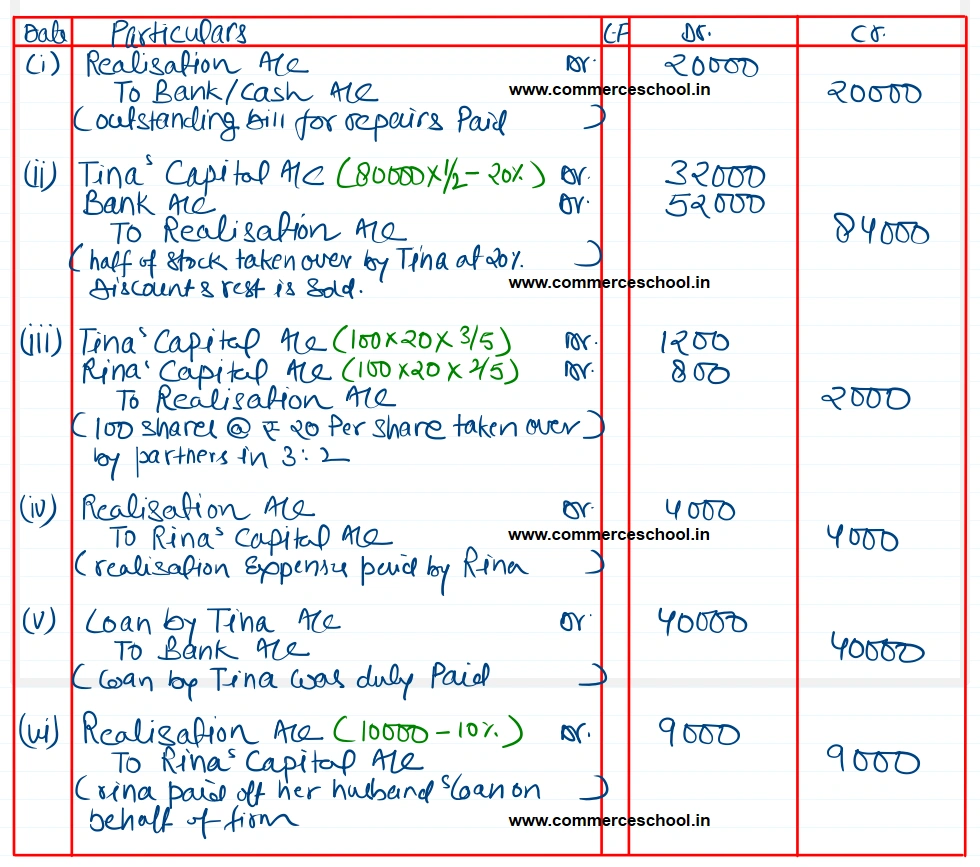 Date Particulars L.F Dr. Cr.
(i) Realisation A/c Dr. 20000
To Bank/Cash A/c www.commerceschool.in 20000
(outstanding bill for repairs Paid)
(ii) Tina's Capital A/c (80000 x 1/2 - 20%) Dr. 32000
Bank A/c Dr. 52000
To Realisation A/c 84000
(half of stock taken over by Tina at 20%.
Discount & rest is Sold.) www.commerceschool.in
(iii) Tina's Capital A/c (100 x 20 x 3/5) Dr. 1200
Rina's Capital A/c (100 x 20 x 2/5) Dr. 800
To Realisation A/c 2000
(100 Shares @ ₹ 20 Per share taken over)
by partners in 3:2
(iv) Realisation A/c Dr. 4000
To Rina's Capital A/c www.commerceschool.in 4000
(realisation Expense paid by Rina)
(v) Loan by Tina A/c Dr. 40000
To Bank A/c 40000
(Loan by Tina was duly Paid)
(vi) Realisation A/c (10000 - 10%) Dr. 9000
To Rina's Capital A/c 9000
(rina paid off her husband's loan on)
behalf of firm www.commerceschool.in